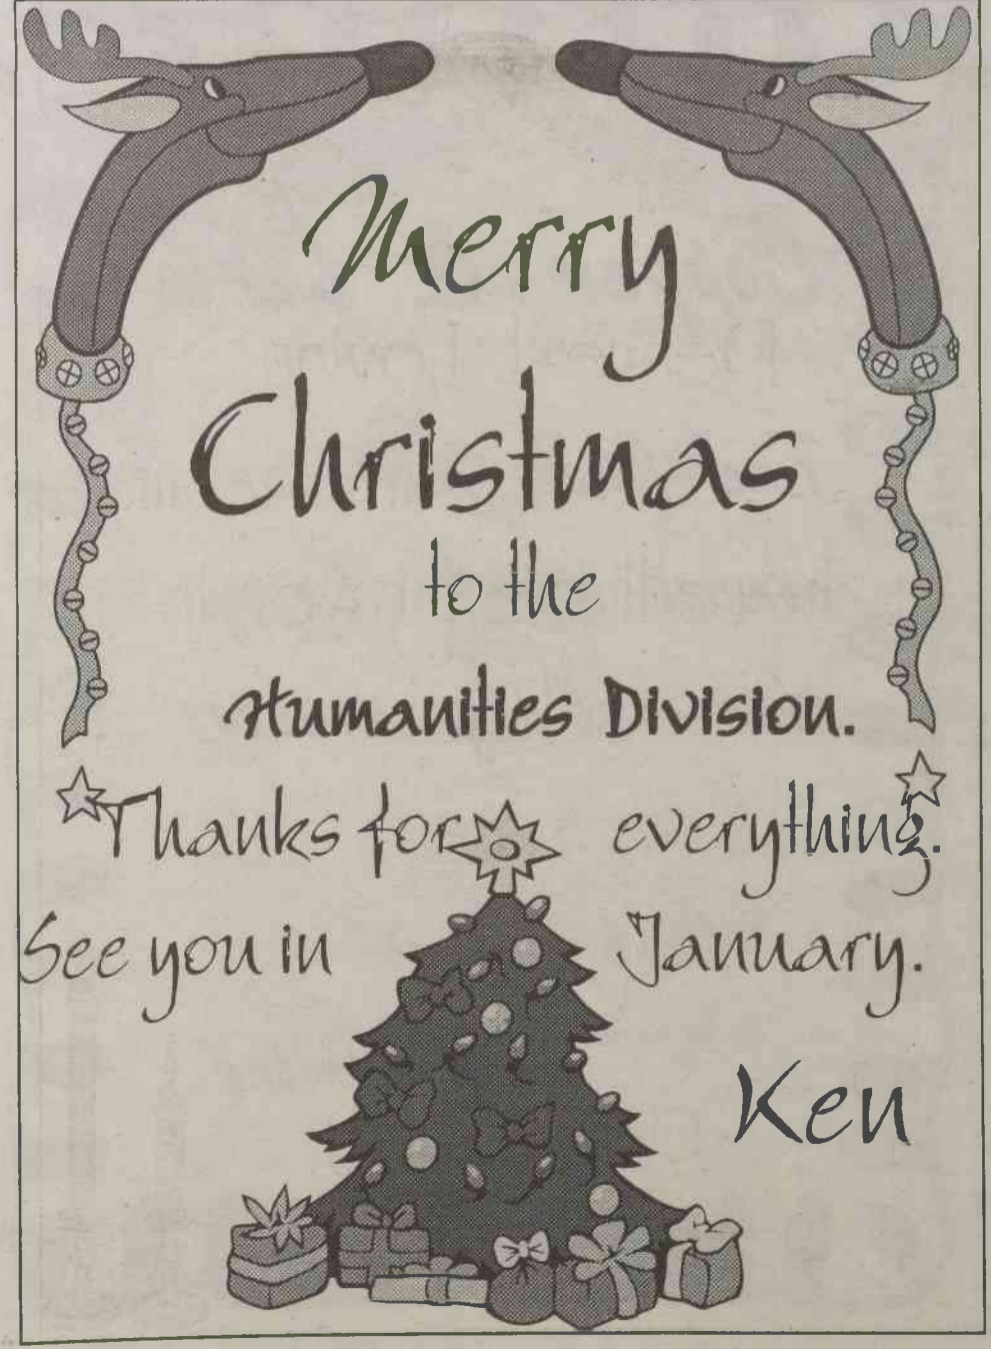 Merry
Christmas
to the
Humanities Division.
Thanks for everything.
See you in January.
Ken